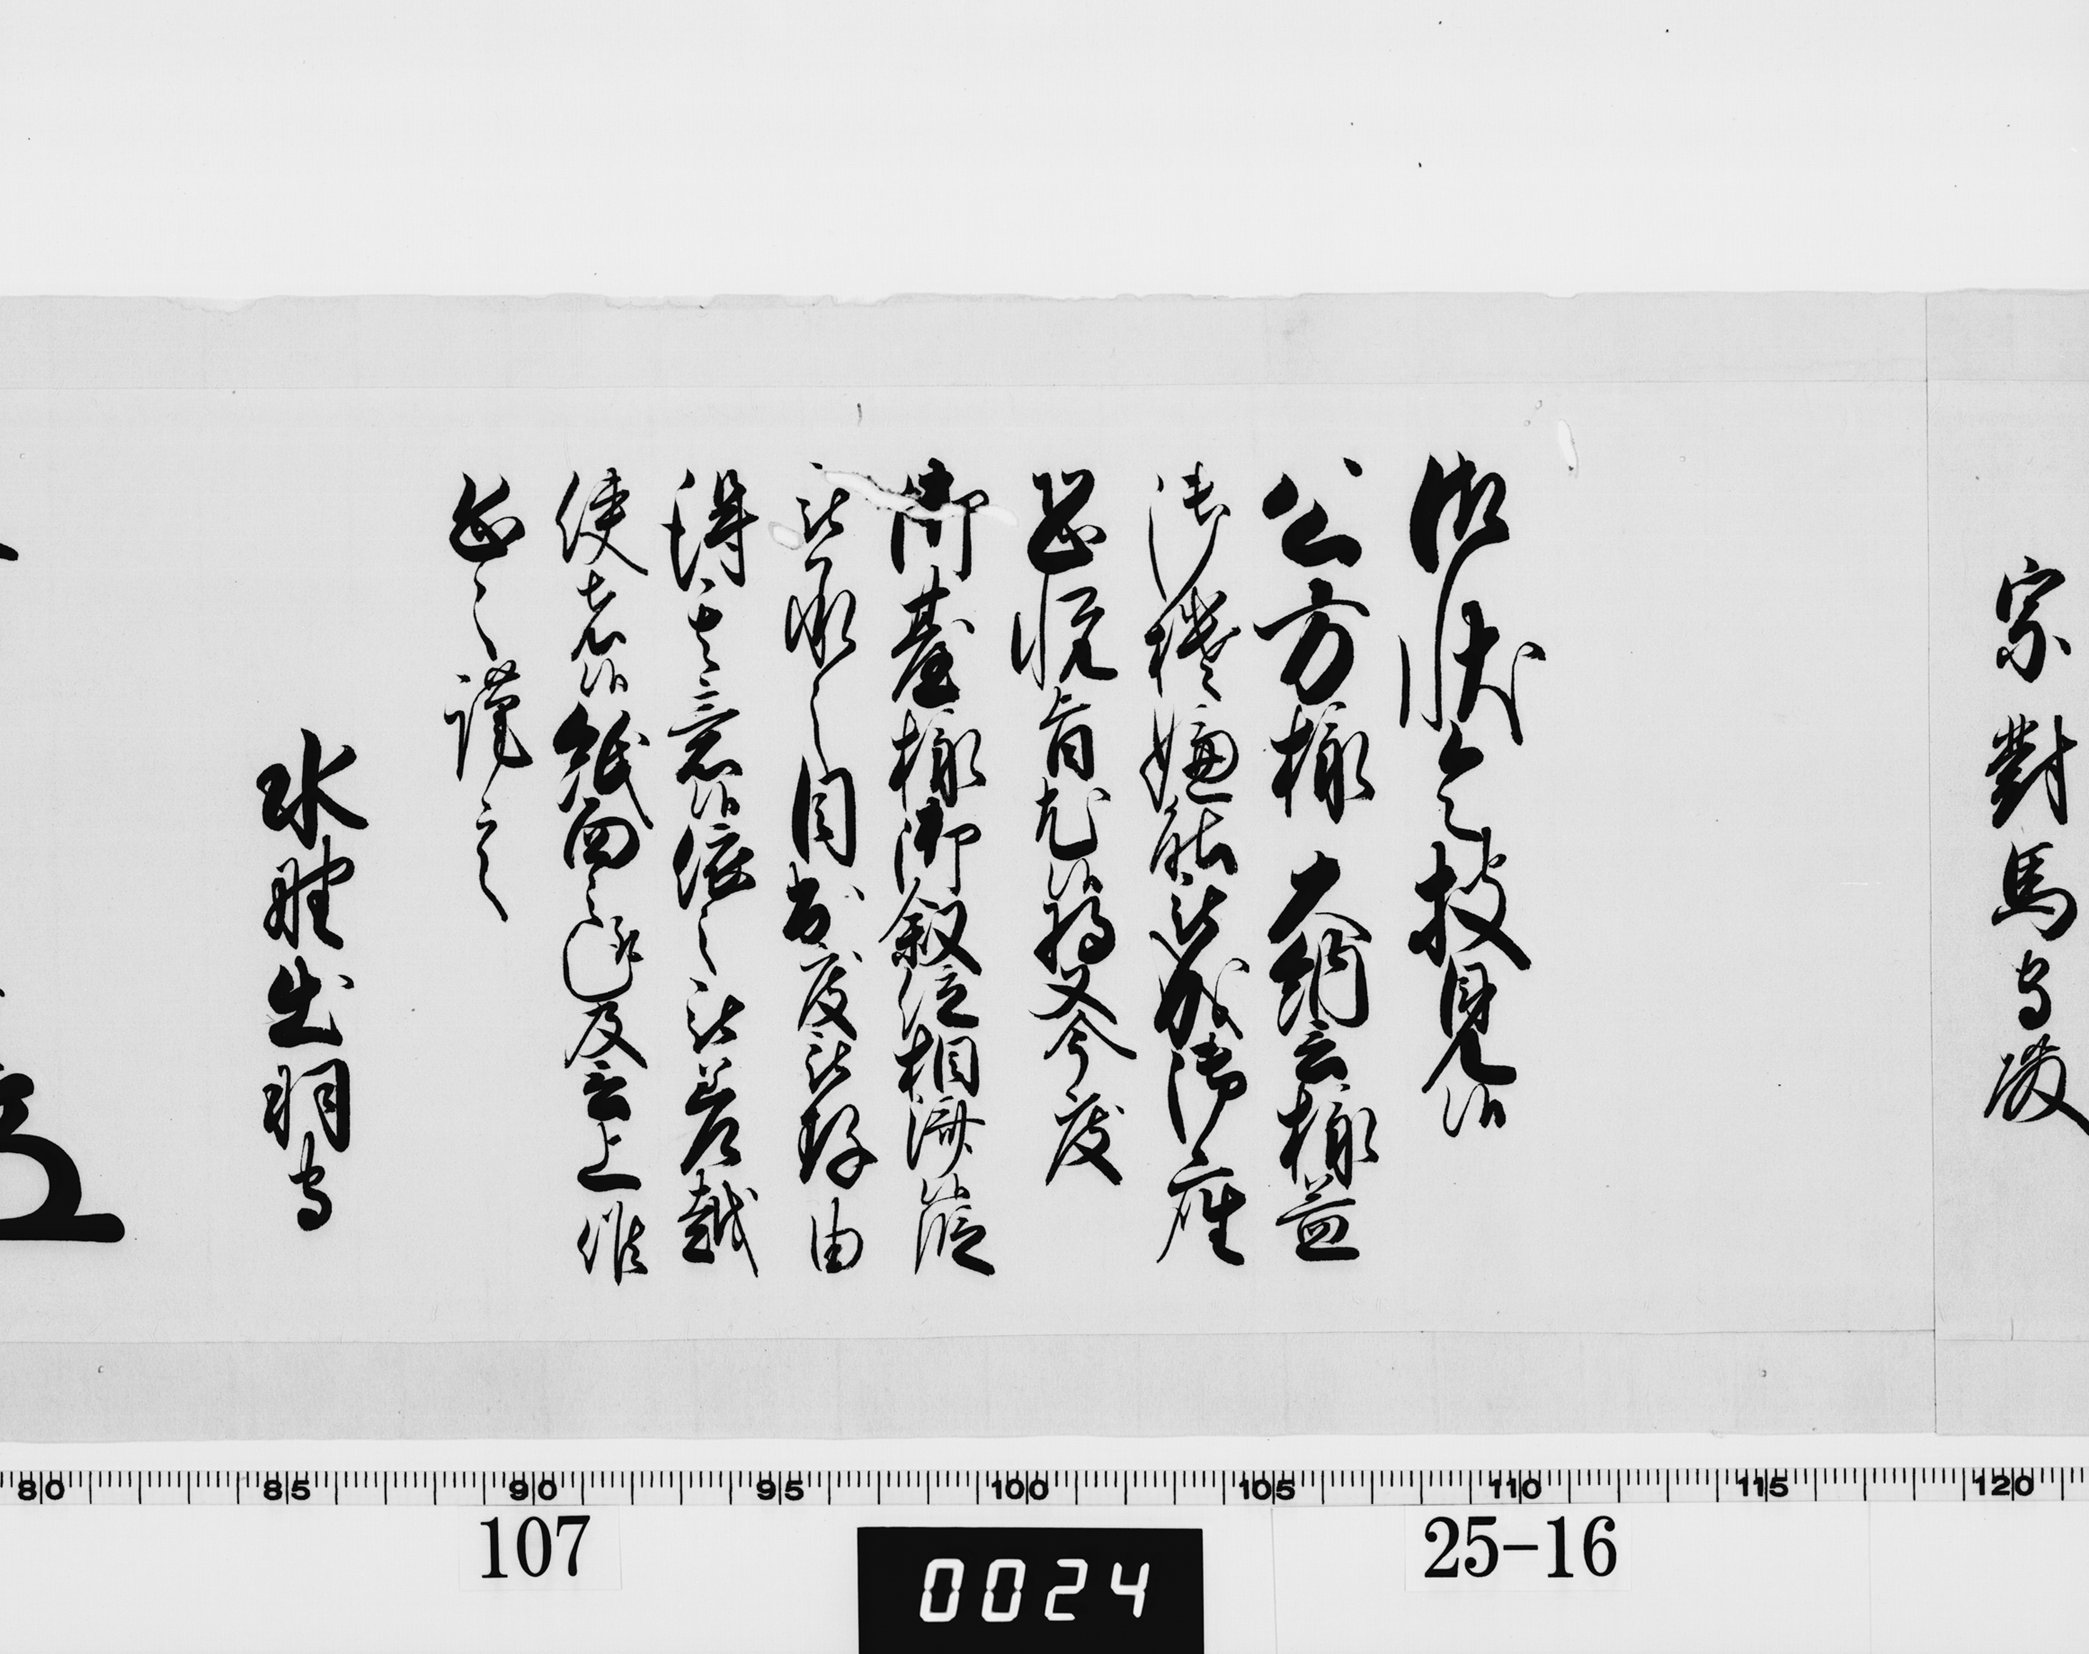 宗對馬守殿
御状令披見候
公方様大納言様益
御機嫌能被成御座
恐悦旨尤候将又今度
御臺様御叙位相済候段
被承之目出度被存由
得其意候依之被差越
使者候紙面之趣及言上候
恐々謹言
水野出羽守
80 85 90 95 100 105 110 115 120
107
0024
25-16